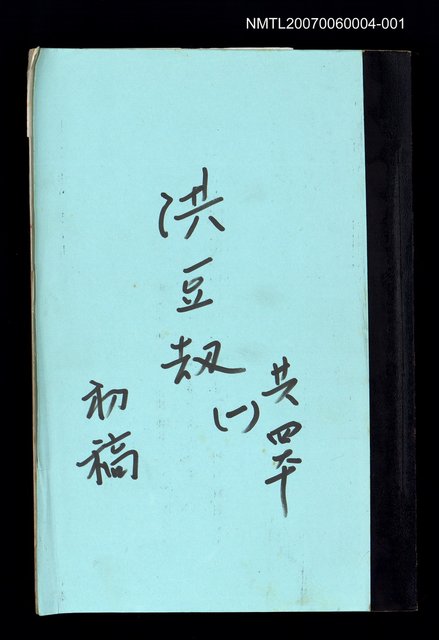 NMTL20070060004-001
共四本
洪豆劫
(一)
初稿